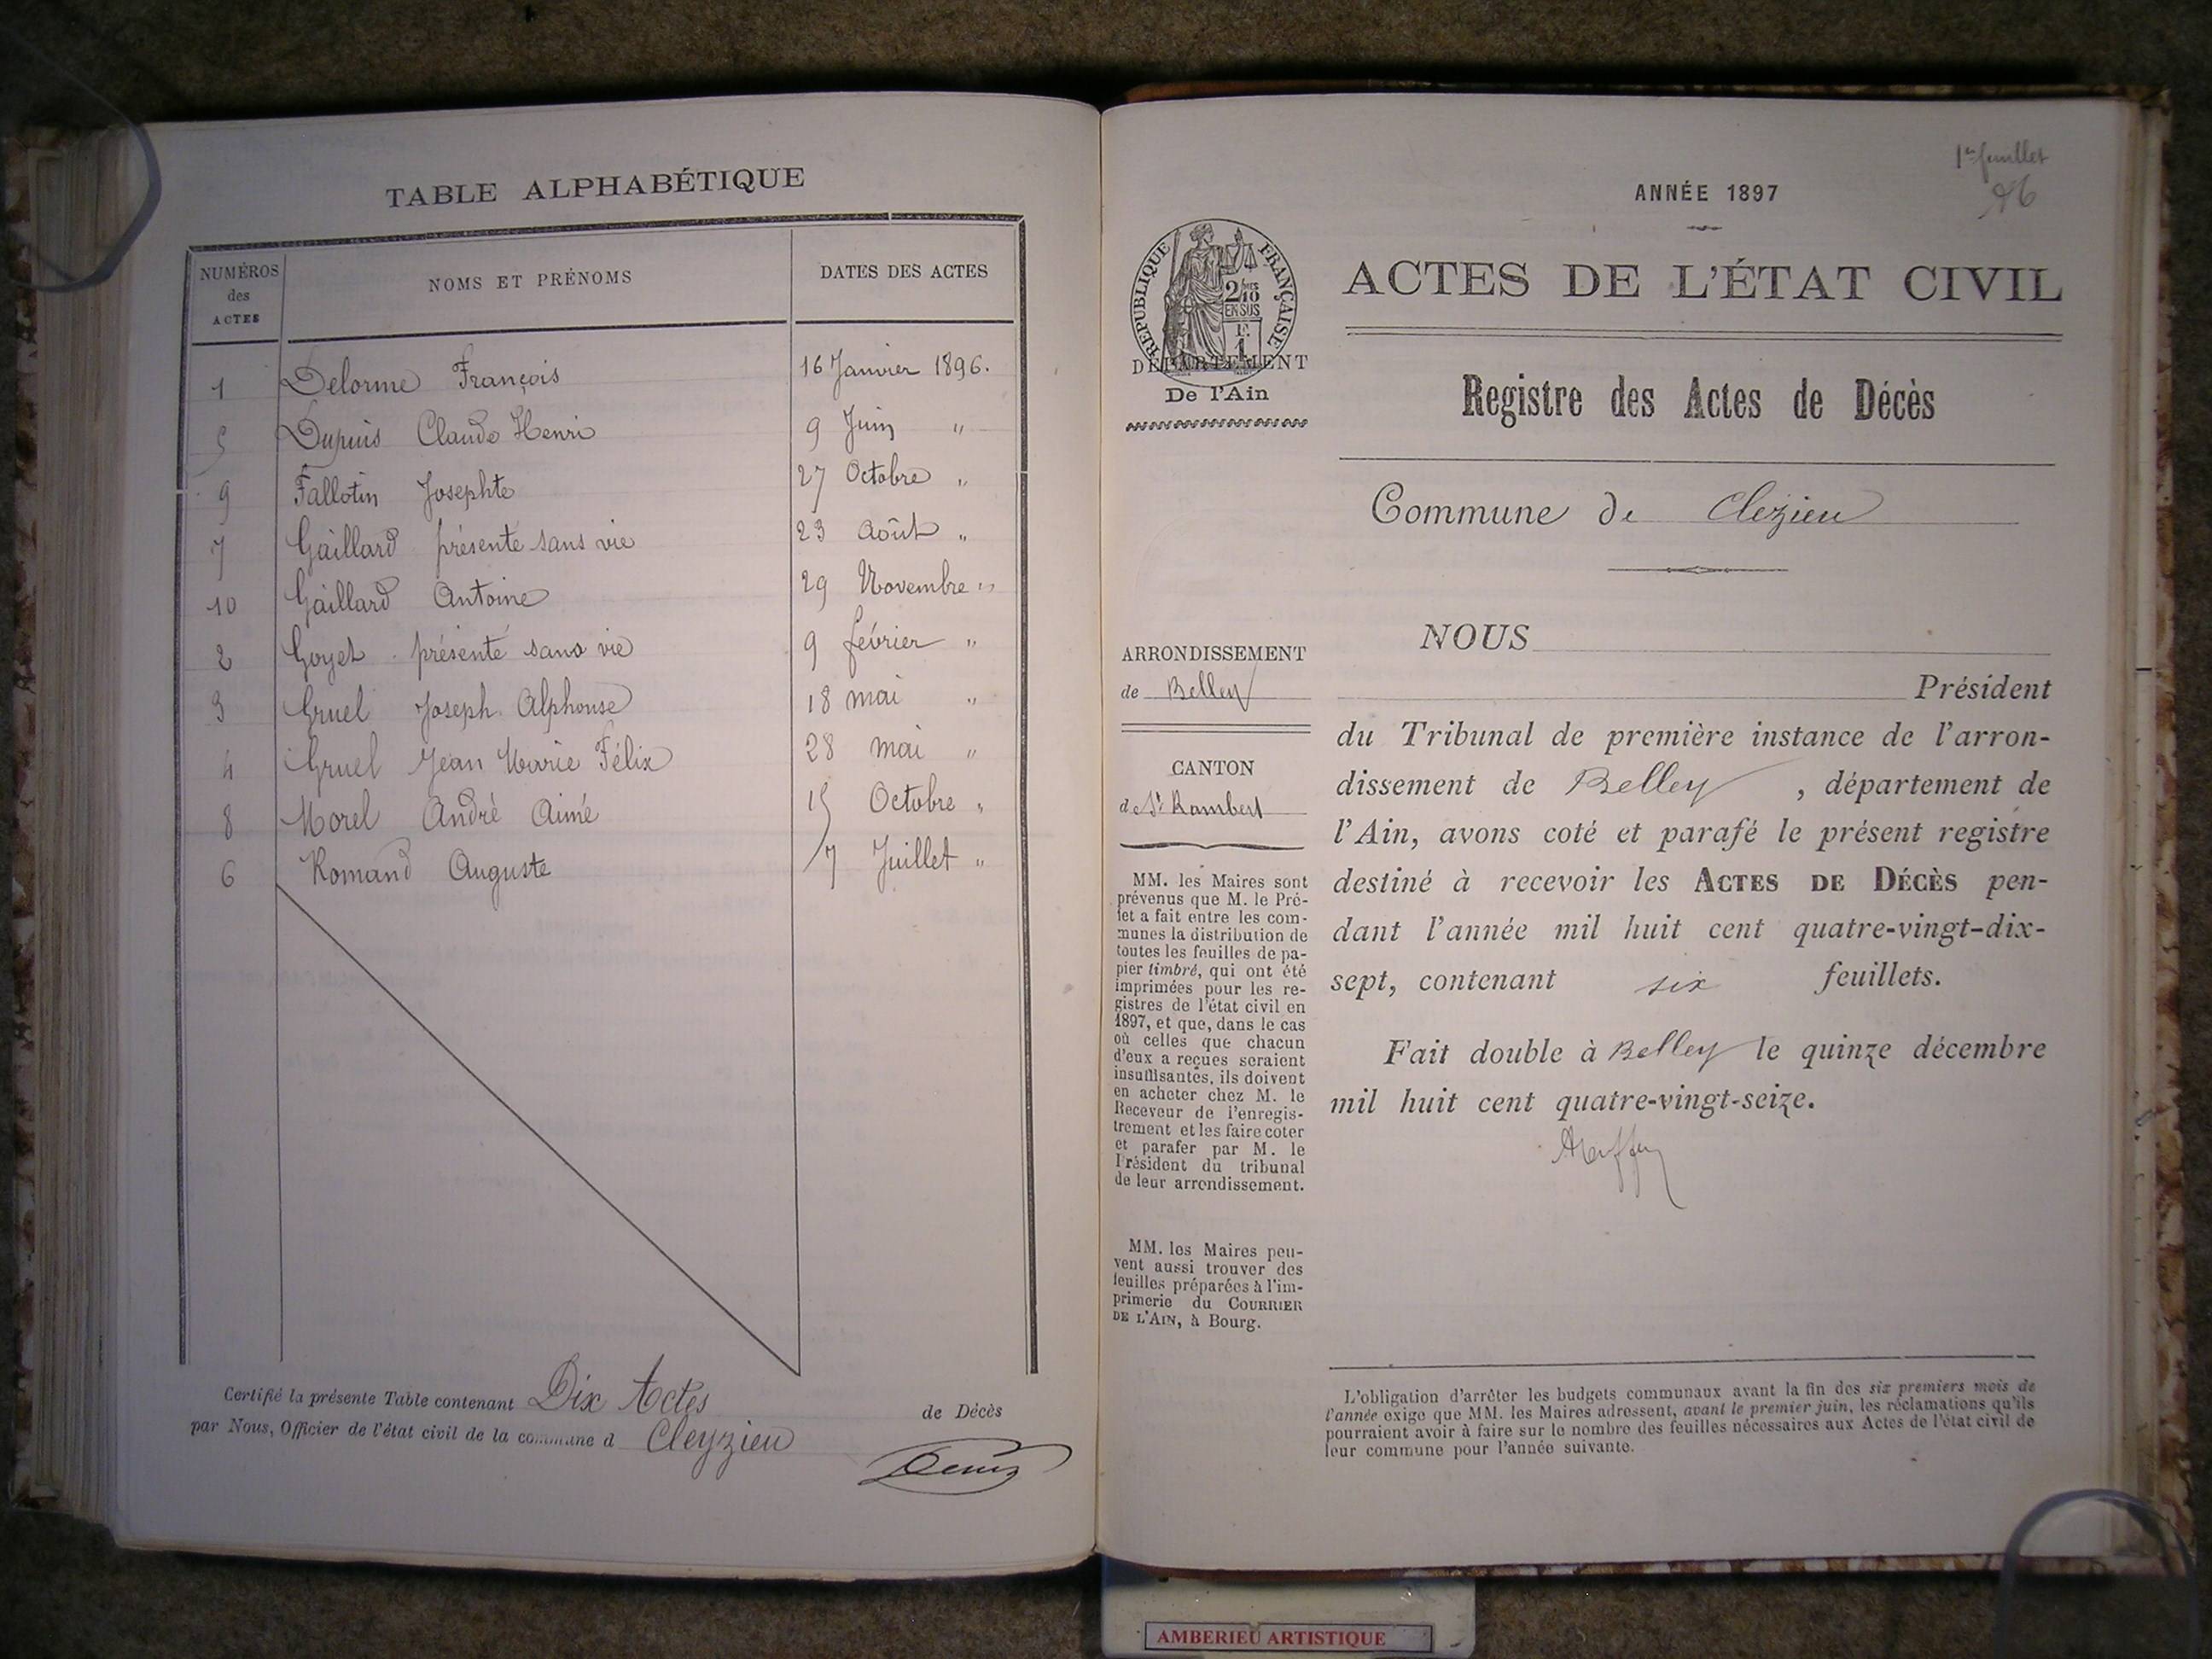 TABLE ALPHABÉTIQUE
NUMÉROS des ACTES
NOMS ET PRÉNOMS
DATES DES ACTES
1 Delorme François 16 Janvier 1896.
5 Dupuis Claude Henri 9 Juin "
9 Fallotin Josephte 27 Octobre "
7 Gaillard présenté sans vie 23 Août "
10 Gaillard Antoine 29 Novembre "
2 Goyet présenté sans vie 9 février "
3 Gruel Joseph Alphonse 18 mai "
4 Gruel Jean Marie Félix 28 mai "
8 Morel André Aimé 15 Octobre "
6 Romand Auguste 7 Juillet "
Certifié la présente Table contenant Dix Actes de Décès
par Nous, Officier de l'état civil de la commune d Cleyzieu
1er feuillet
ANNÉE 1897
RÉPUBLIQUE FRANÇAISE
2/10
EN SUS
DÉPARTEMENT
De l'Ain
ACTES DE L'ÉTAT CIVIL
Registre des Actes de Décès
Commune de Clezieu
ARRONDISSEMENT
de Belley
CANTON
de St Rambert
MM. les Maires sont
prévenus que M. le Pré-
fet a fait entre les com-
munes la distribution de
toutes les feuilles de pa-
pier timbré, qui ont été
imprimées pour les re-
gistres de l'état civil en
1897, et que, dans le cas
où celles que chacun
d'eux a reçues seraient
insuffisantes, ils doivent
en acheter chez M. le
Receveur de l'enregis-
trement et les faire coter
et parafer par M. le
Président du tribunal
de leur arrondissement.
MM. les Maires peu-
vent aussi trouver des
feuilles préparées à l'im-
primerie du COURRIER
DE L'AIN, à Bourg.
NOUS
Président
du Tribunal de première instance de l'arron-
dissement de Belley, département de
l'Ain, avons coté et parafé le présent registre
destiné à recevoir les ACTES DE DÉCÈS pen-
dant l'année mil huit cent quatre-vingt-dix-
sept, contenant six feuillets.
Fait double à Belley le quinze décembre
mil huit cent quatre-vingt-seize.
L'obligation d'arrêter les budgets communaux avant la fin des six premiers mois de
l'année exige que MM. les Maires adressent, avant le premier juin, les réclamations qu'ils
pourraient avoir à faire sur le nombre des feuilles nécessaires aux Actes de l'état civil de
leur commune pour l'année suivante.
AMBERIEU ARTISTIQUE